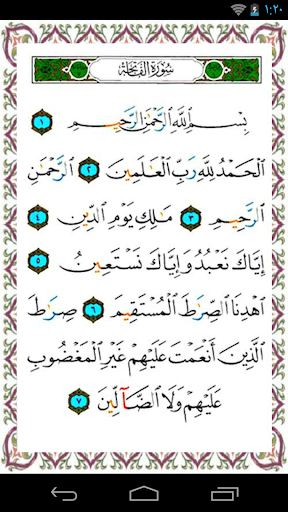 ١:٢٠
سُورَةُ الفَاتِحَةِ
بِسْمِ ٱللَّهِ ٱلرَّحْمَٰنِ ٱلرَّحِيمِ ١
ٱلْحَمْدُ لِلَّهِ رَبِّ ٱلْعَٰلَمِينَ ٢ ٱلرَّحْمَٰنِ
ٱلرَّحِيمِ ٣ مَٰلِكِ يَوْمِ ٱلدِّينِ ٤
إِيَّاكَ نَعْبُدُ وَإِيَّاكَ نَسْتَعِينُ ٥
ٱهْدِنَا ٱلصِّرَٰطَ ٱلْمُسْتَقِيمَ ٦ صِرَٰطَ
ٱلَّذِينَ أَنْعَمْتَ عَلَيْهِمْ غَيْرِ ٱلْمَغْضُوبِ
عَلَيْهِمْ وَلَا ٱلضَّآلِّينَ ٧